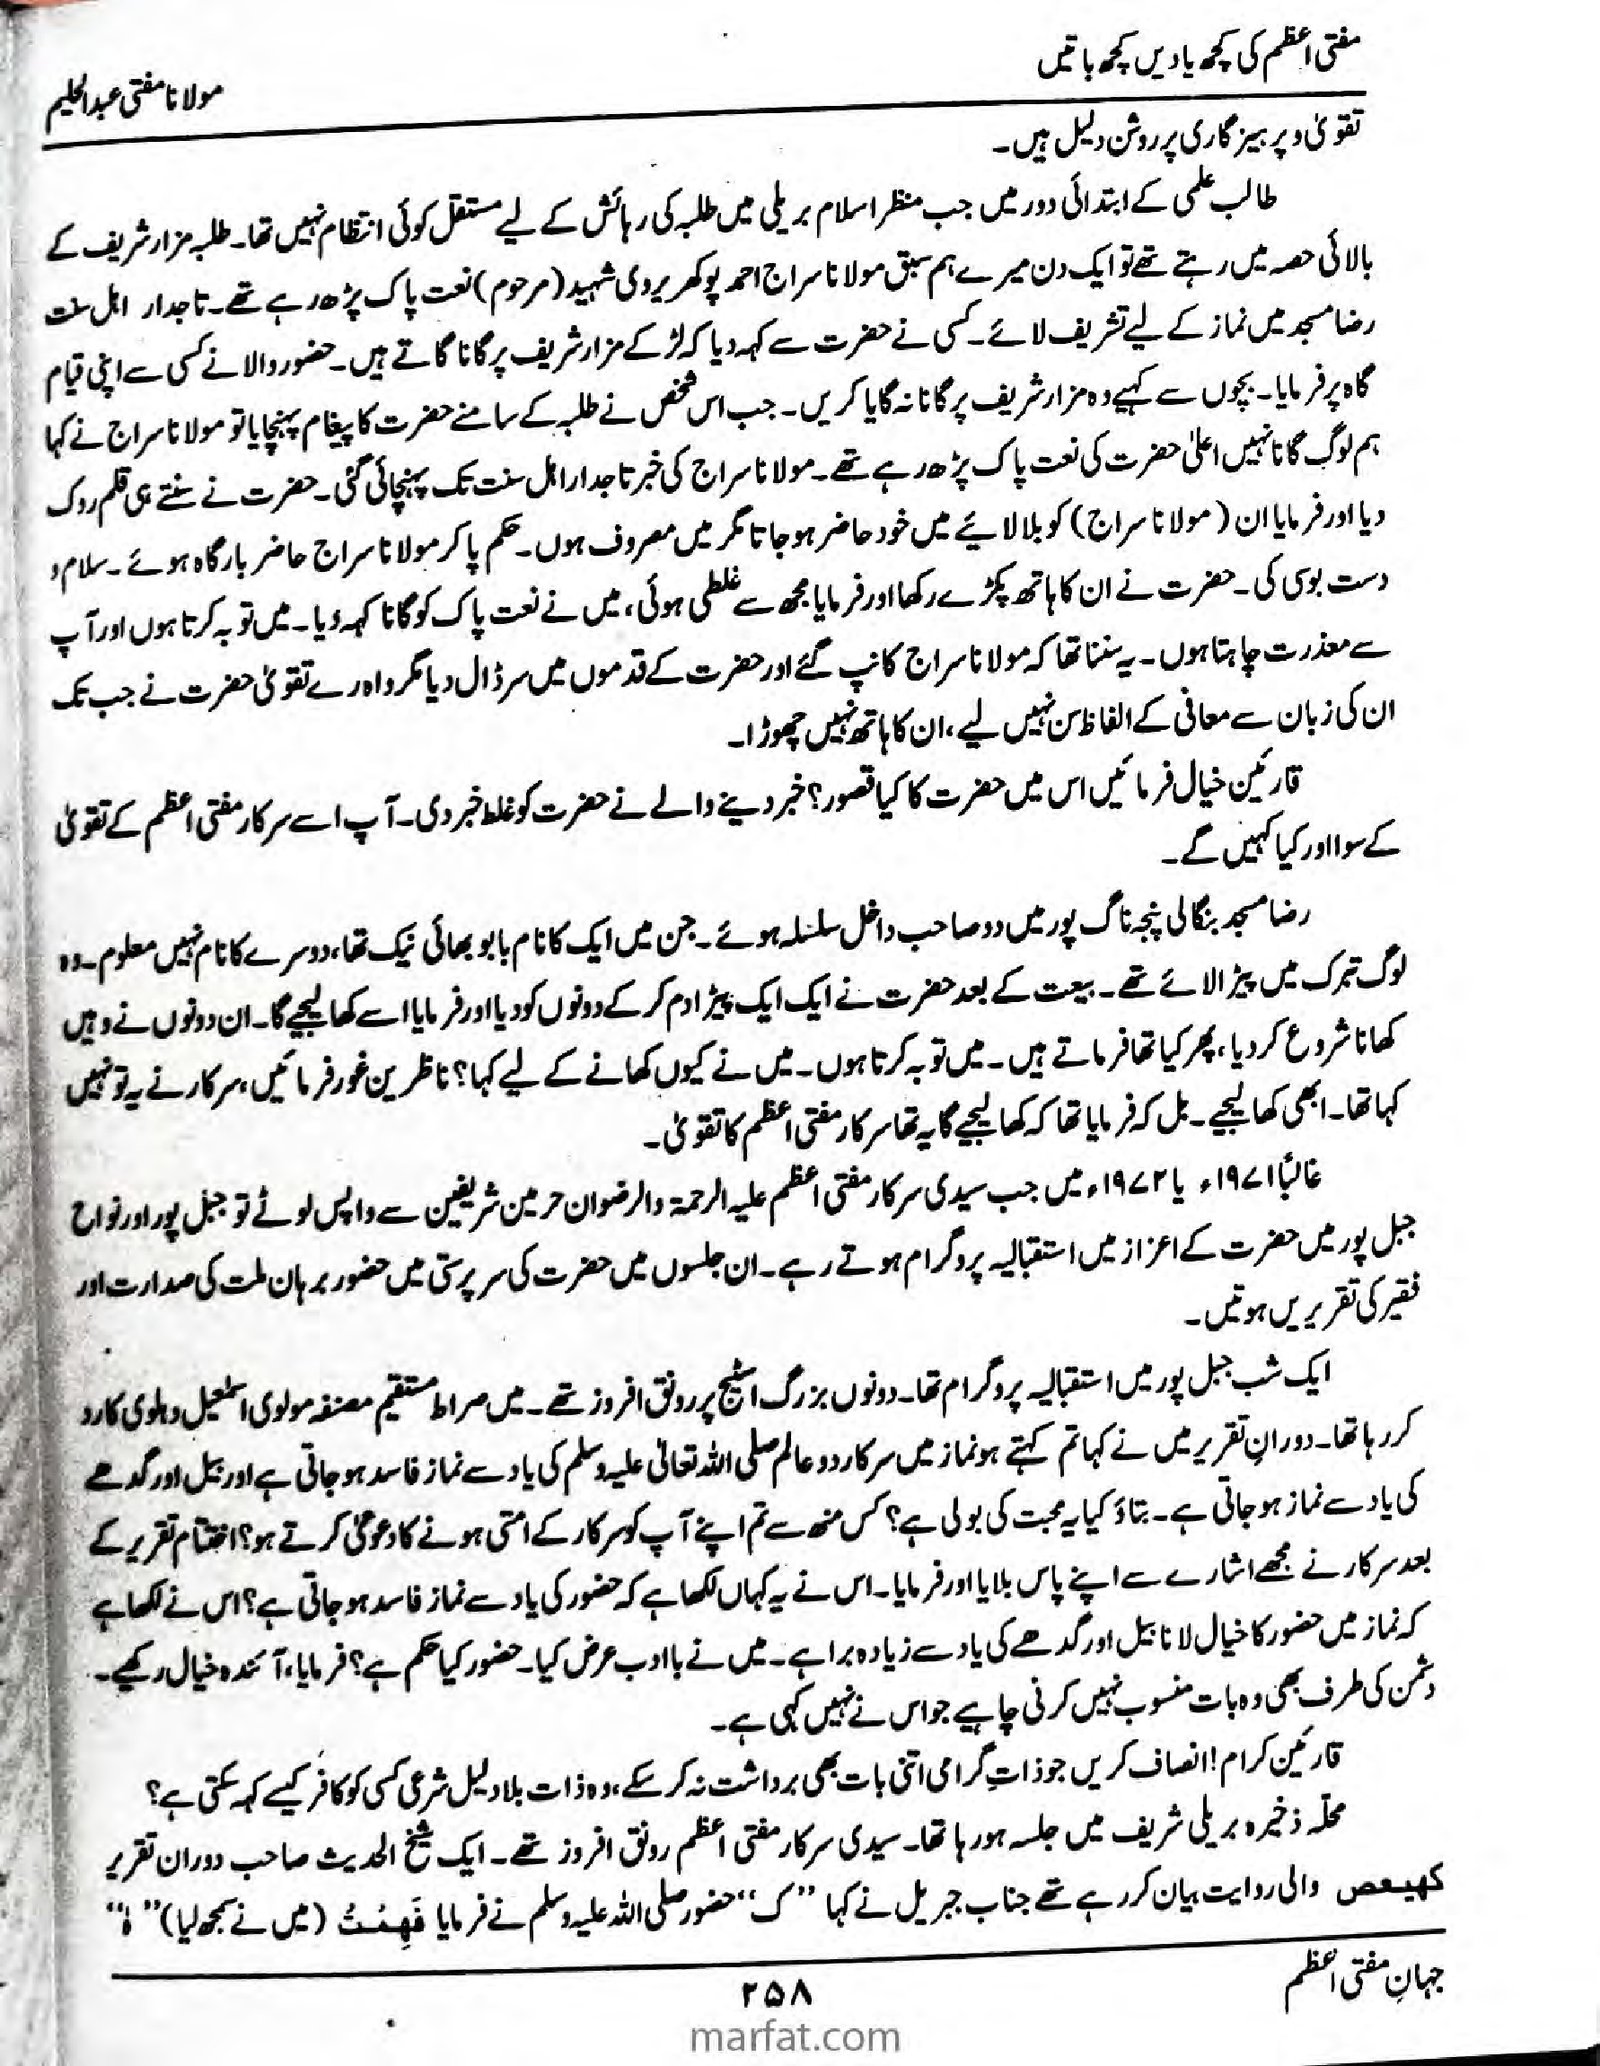 مفتی اعظم کی کچھ یادیں کچھ باتیں
مولانا مفتی عبدالحلیم
تقویٰ و پرہیزگاری پر روشن دلیل ہیں۔
طالب علمی کے ابتدائی دور میں جب منظر اسلام بریلی میں طلبہ کی رہائش کے لیے مستقل کوئی انتظام نہیں تھا۔ طلبہ مزار شریف کے
بالائی حصہ میں رہتے تھے تو ایک دن میرے ہم سبق مولانا سراج احمد پوکھریروی شہید (مرحوم) نعت پاک پڑھ رہے تھے۔ تاجدار اہل سنت
رضا مسجد میں نماز کے لیے تشریف لائے۔ کسی نے حضرت سے کہہ دیا کہ لڑکے مزار شریف پر گانا گاتے ہیں۔ حضور والا نے کسی سے اپنی قیام
گاہ پر فرمایا۔ بچوں سے کہیے وہ مزار شریف پر گانا نہ گایا کریں۔ جب اس شخص نے طلبہ کے سامنے حضرت کا پیغام پہنچایا تو مولانا سراج نے کہا
ہم لوگ گانا نہیں اعلیٰ حضرت کی نعت پاک پڑھ رہے تھے۔ مولانا سراج کی خبر تاجدار اہل سنت تک پہنچائی گئی۔ حضرت نے سنتے ہی قلم روک
دیا اور فرمایا ان (مولانا سراج) کو بلا لائیے میں خود حاضر ہو جاتا مگر میں مصروف ہوں۔ حکم پا کر مولانا سراج حاضر بارگاہ ہوئے۔ سلام و
دست بوسی کی۔ حضرت نے ان کا ہاتھ پکڑے رکھا اور فرمایا مجھ سے غلطی ہوئی، میں نے نعت پاک کو گانا کہہ دیا۔ میں توبہ کرتا ہوں اور آپ
سے معذرت چاہتا ہوں۔ یہ سننا تھا کہ مولانا سراج کانپ گئے اور حضرت کے قدموں میں سر ڈال دیا مگر واہ رے تقویٰ حضرت نے جب تک
ان کی زبان سے معافی کے الفاظ سن نہیں لیے، ان کا ہاتھ نہیں چھوڑا۔
قارئین خیال فرمائیں اس میں حضرت کا کیا قصور؟ خبر دینے والے نے حضرت کو غلط خبر دی۔ آپ اسے سرکار مفتی اعظم کے تقویٰ
کے سوا اور کیا کہیں گے۔
رضا مسجد بنگالی پنجہ ناگ پور میں دو صاحب داخل سلسلہ ہوئے۔ جن میں ایک کا نام بابو بھائی نیک تھا، دوسرے کا نام نہیں معلوم۔ وہ
لوگ تبرک میں پیڑا لائے تھے۔ بیعت کے بعد حضرت نے ایک ایک پیڑا دم کر کے دونوں کو دیا اور فرمایا اسے کھا لیجیے گا۔ ان دونوں نے وہیں
کھانا شروع کر دیا، پھر کیا تھا فرماتے ہیں۔ میں توبہ کرتا ہوں۔ میں نے کیوں کھانے کے لیے کہا؟ ناظرین غور فرمائیں، سرکار نے یہ تو نہیں
کہا تھا۔ ابھی کھا لیجیے۔ بل کہ فرمایا تھا کہ کھا لیجیے گا یہ تھا سرکار مفتی اعظم کا تقویٰ۔
غالبًا ۱۹۷۱ء یا ۱۹۷۲ء میں جب سیدی سرکار مفتی اعظم علیہ الرحمۃ والرضوان حرمین شریفین سے واپس لوٹے تو جبل پور اور نواح
جبل پور میں حضرت کے اعزاز میں استقبالیہ پروگرام ہوتے رہے۔ ان جلسوں میں حضرت کی سرپرستی میں حضور برہان ملت کی صدارت اور
فقیر کی تقریریں ہوتیں۔
ایک شب جبل پور میں استقبالیہ پروگرام تھا۔ دونوں بزرگ اسٹیج پر رونق افروز تھے۔ میں صراط مستقیم مصنفہ مولوی اسمٰعیل دہلوی کا رد
کر رہا تھا۔ دورانِ تقریر میں نے کہا تم کہتے ہو نماز میں سرکار دو عالم صلی اللہ تعالیٰ علیہ وسلم کی یاد سے نماز فاسد ہو جاتی ہے اور بیل اور گدھے
کی یاد سے نماز ہو جاتی ہے۔ بتاؤ کیا یہ محبت کی بولی ہے؟ کس منھ سے تم اپنے آپ کو سرکار کے امتی ہونے کا دعویٰ کرتے ہو؟ اختتام تقریر کے
بعد سرکار نے مجھے اشارے سے اپنے پاس بلایا اور فرمایا۔ اس نے یہ کہاں لکھا ہے کہ حضور کی یاد سے نماز فاسد ہو جاتی ہے؟ اس نے لکھا ہے
کہ نماز میں حضور کا خیال لانا بیل اور گدھے کی یاد سے زیادہ برا ہے۔ میں نے باادب عرض کیا۔ حضور کیا حکم ہے؟ فرمایا، آئندہ خیال رکھیے۔
دشمن کی طرف بھی وہ بات منسوب نہیں کرنی چاہیے جو اس نے نہیں کہی ہے۔
قارئین کرام! انصاف کریں جو ذاتِ گرامی اتنی بات بھی برداشت نہ کر سکے، وہ ذات بلا دلیل شرعی کسی کو کافر کیسے کہہ سکتی ہے؟
محلّہ ذخیرہ بریلی شریف میں جلسہ ہو رہا تھا۔ سیدی سرکار مفتی اعظم رونق افروز تھے۔ ایک شیخ الحدیث صاحب دوران تقریر
کھیعص والی روایت بیان کر رہے تھے جناب جبریل نے کہا ”ک“ حضور صلی اللہ علیہ وسلم نے فرمایا فَهِمْتُ (میں نے سمجھ لیا) ”ہٰ“
جہانِ مفتی اعظم
۲۵۸
marfat.com